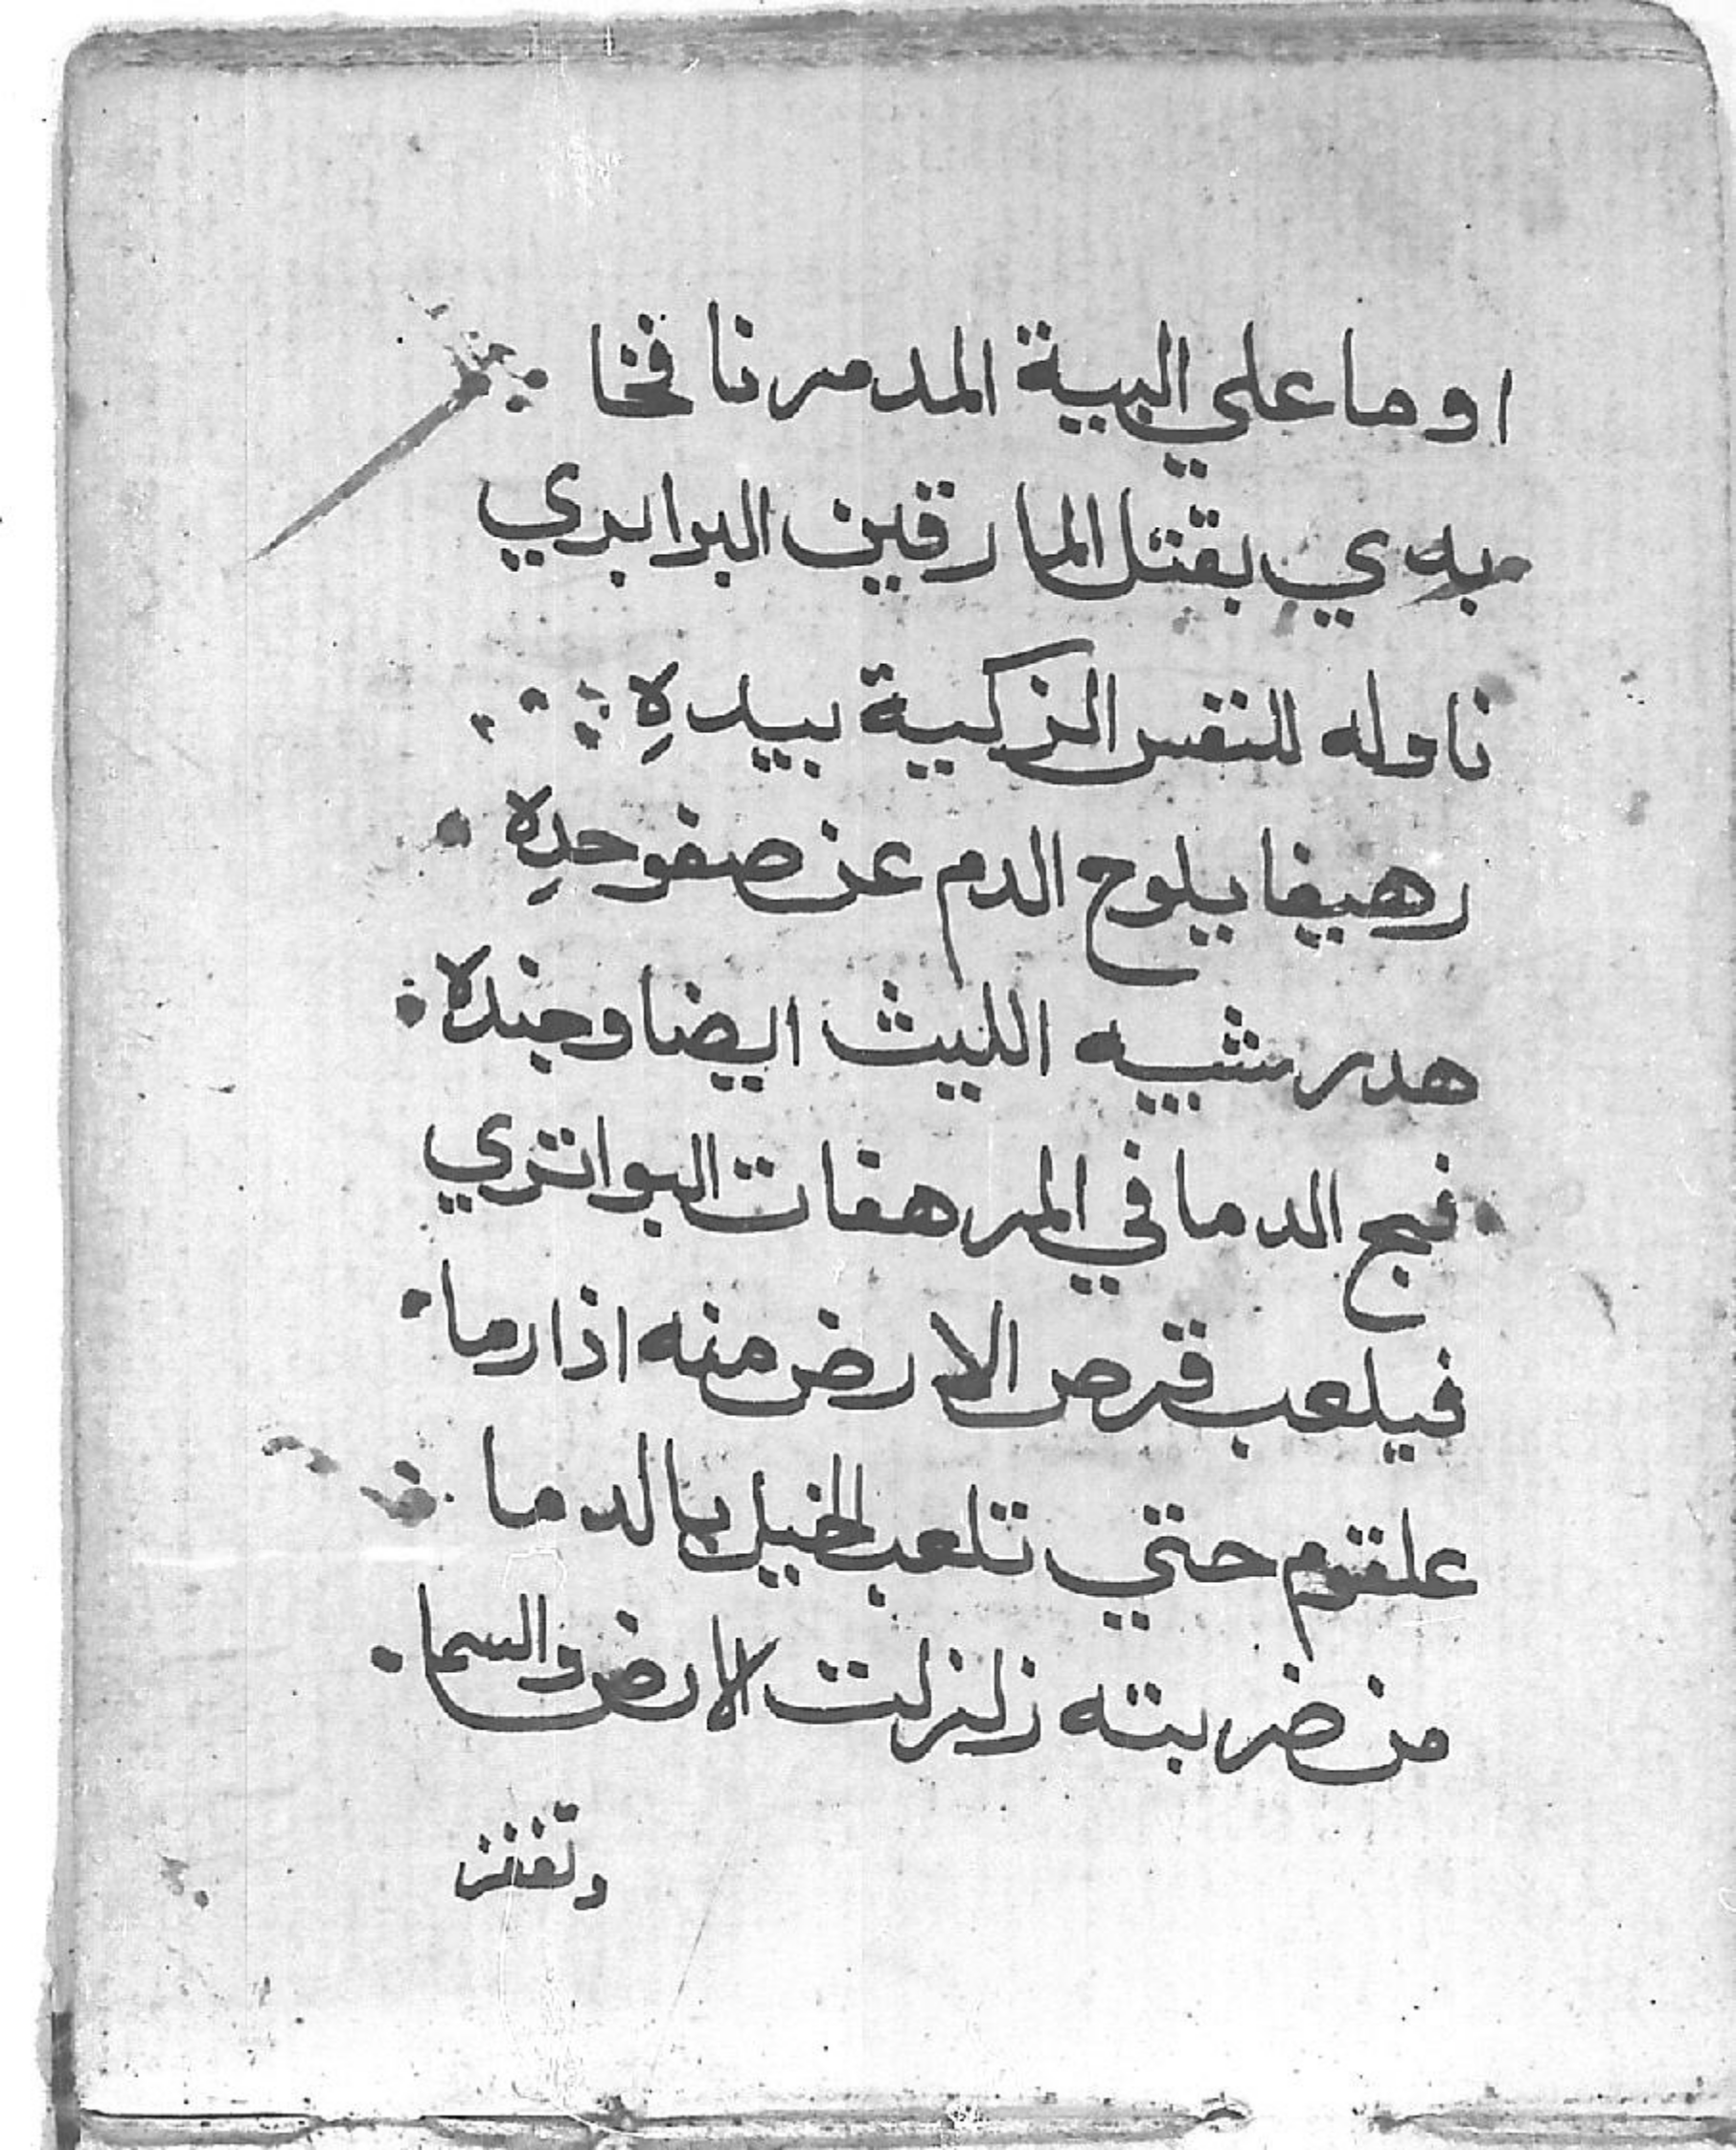 اوما علي البية المدمر نافخا
بهي بقتل المارقين البرابري
ناوله للنفس الزكية بيده
رهيفا يلوح الدم عن صفو حده
هدر شبيه الليث ايضا وجنده
فيج الدما في المرهفات البواتري
فيلعب قرص الارض منه اذا رما
علقوم حتي تلعب الخيل بالدما
من ضربته زلزلت الارض والسما